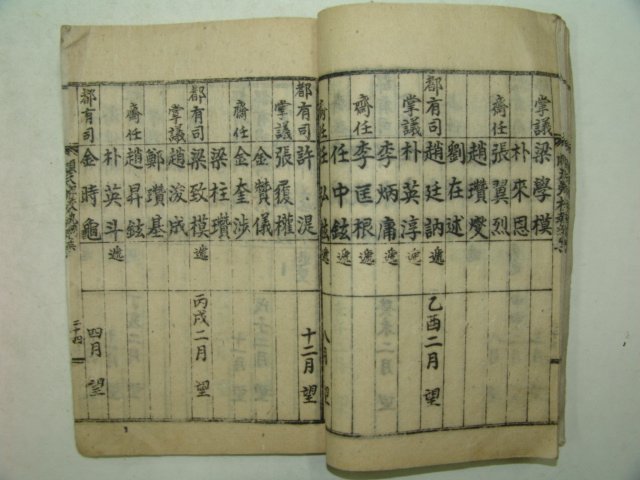 掌議 梁學模
朴來恩
齋任 張翼烈
趙瓚燮
劉在述
都有司 趙廷訥 遞 乙酉二月 望
掌議 朴英淳 遞
李炳庸 遞
齋任 李匡根 遞
任中鉉 遞
任弘鉉 遞 八月 望
都有司 許湜 十二月 望
掌議 張履權
金贊儀
齋任 金奎涉
梁柱瓚
都有司 梁致模 丙戌二月 望
掌議 趙浚成
鄭瓚基
齋任 趙昇鉉
朴英斗 遞
都有司 金時龜 四月 望
二十四